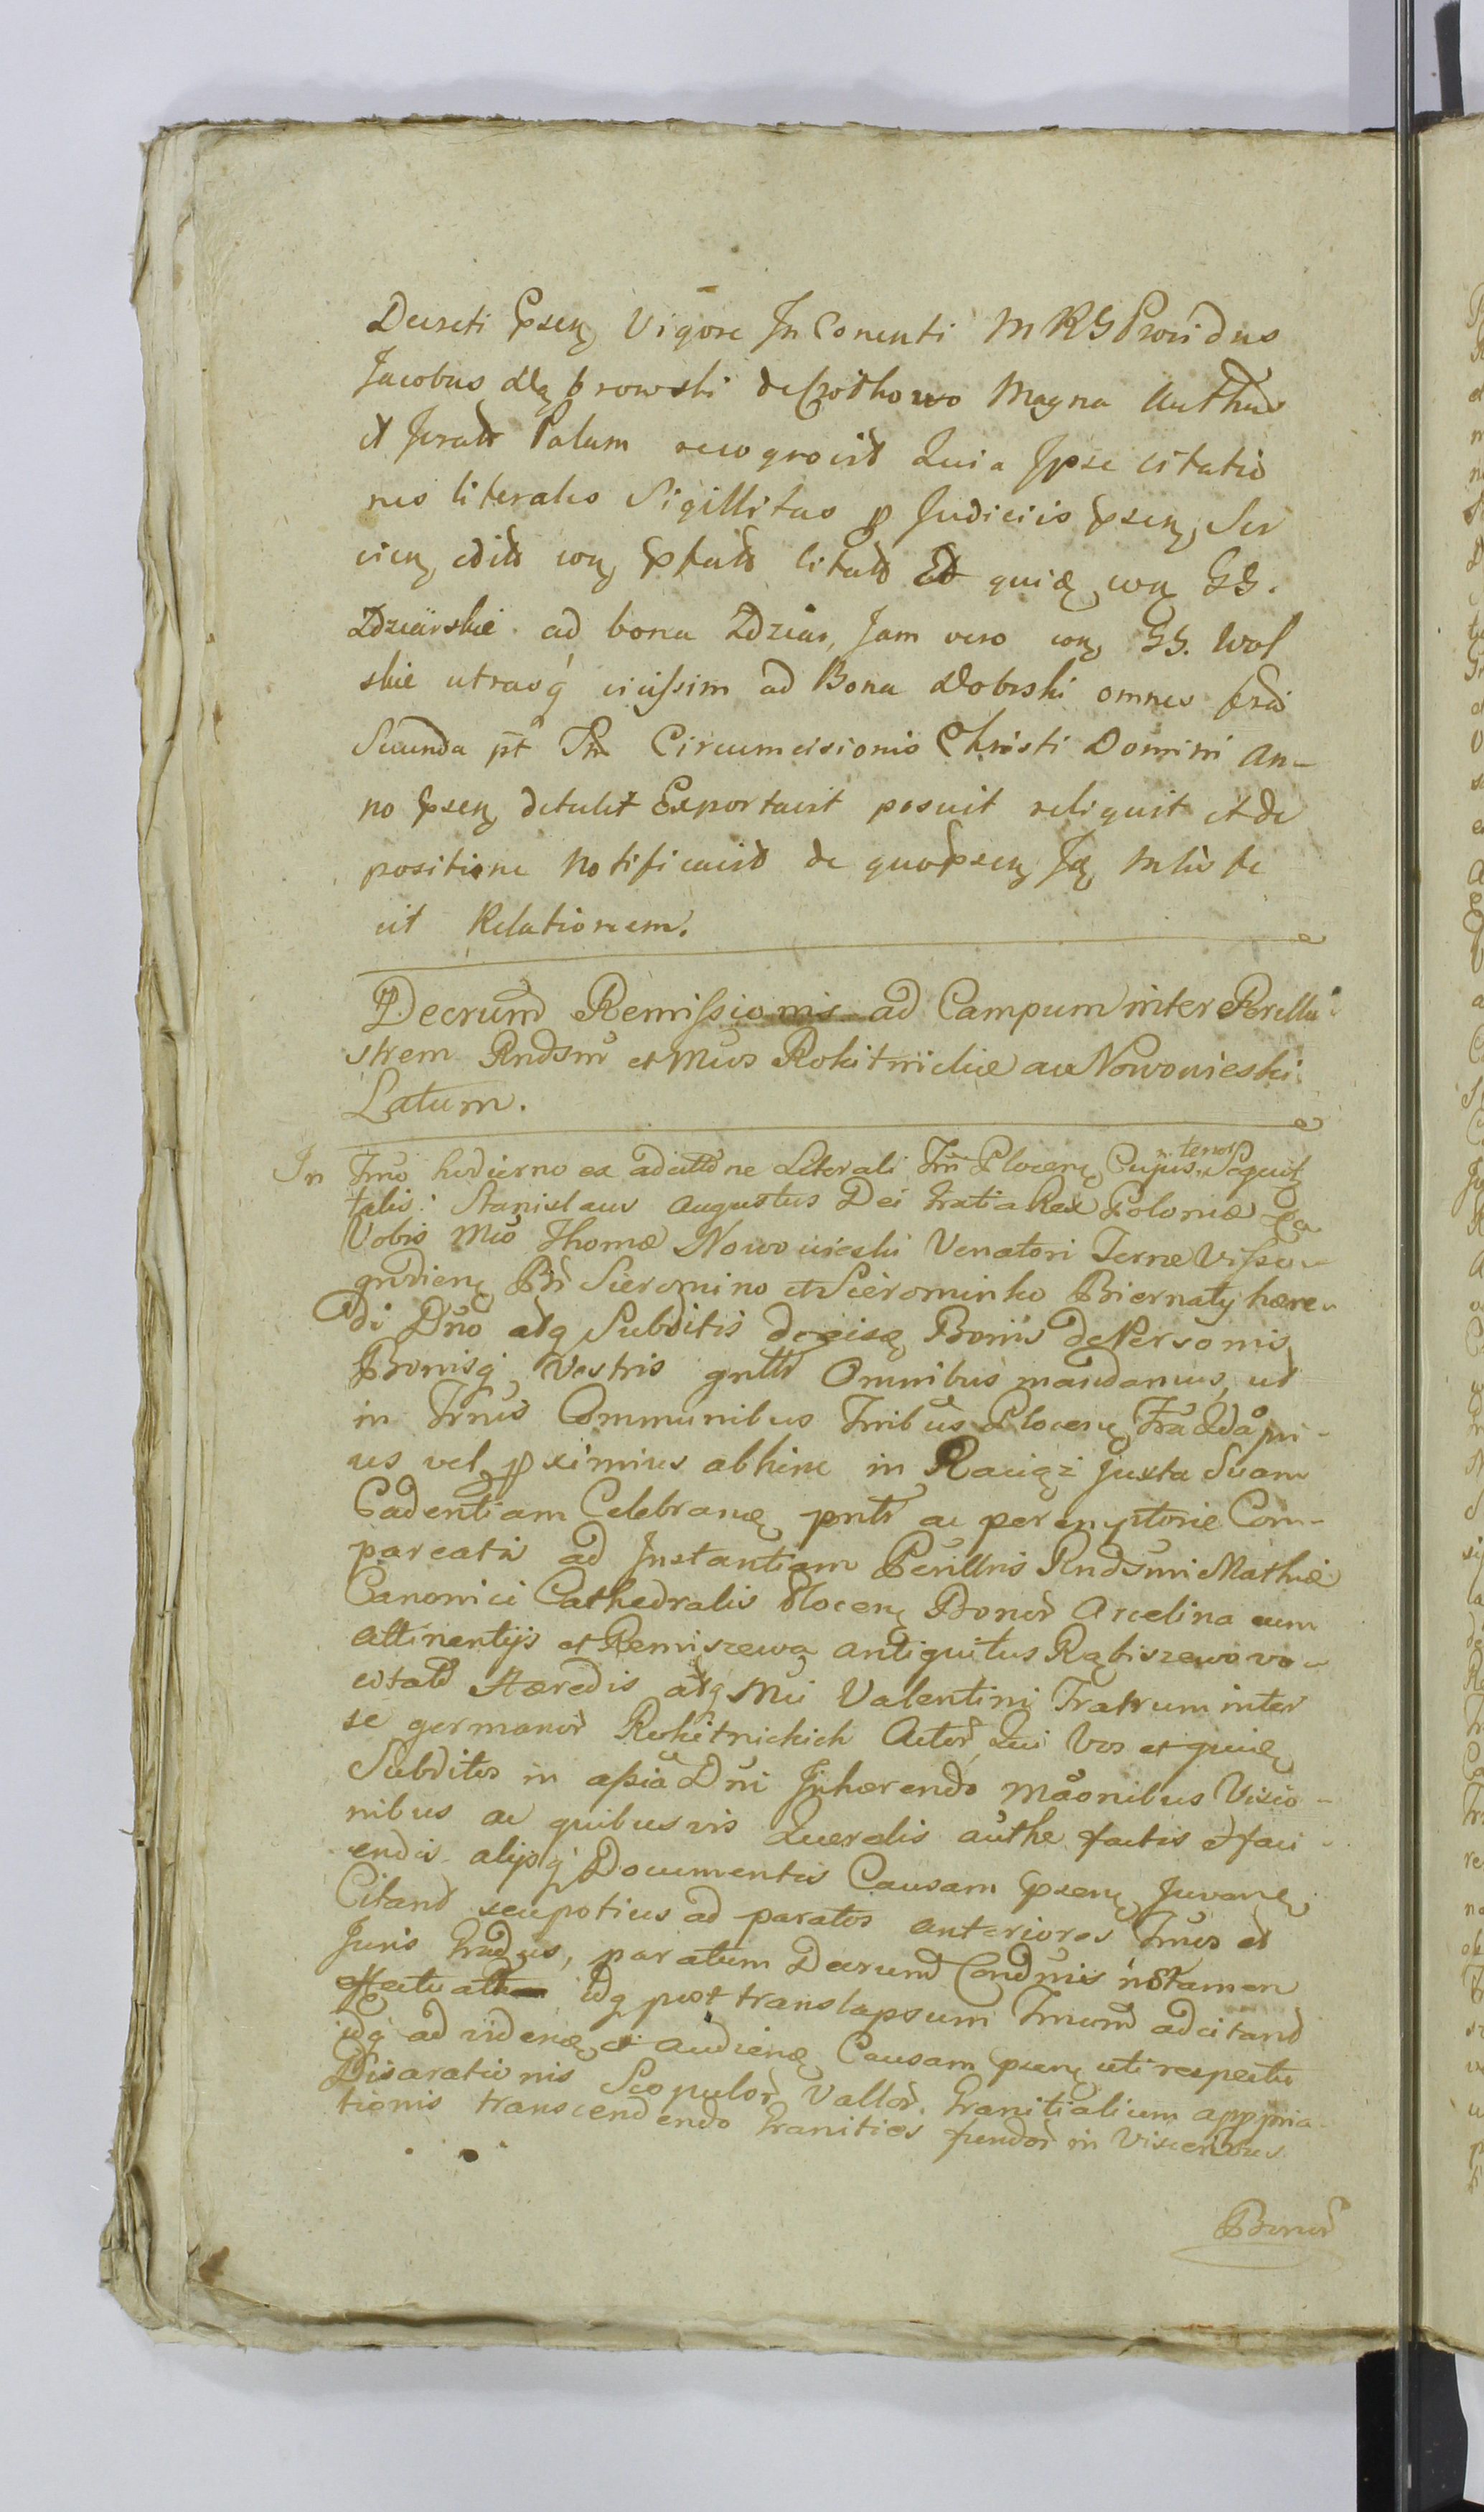 Decreti psen Vigore In Conenti MRG Providus
Jacobus Dąbrowski de Magna Authus
et Jurats Palam recognovit Quia Ipse citatio
nes literales Sigillitas p Judiciis psen, Ser
vien, edits con, ptats citats Et quię con GG.
Zdziarskie ad bona Zdziar, Jam vero con, GG. Wol
skie utrasq vicissim ad Bona Dobrski omnes fria
Secunda pt Fm Circumcisionis Christi Domini An-
no psen, detulit Exportavit posuit reliquit et de
positione Notificavit de quo psen, Ją Mltis fe
cit Relationem.
Decrum Remissionis ad Campum inter Perillu
strem Rndsm et Mcos Rokitnickie ac Nowowieski
Latum.
In Tmo hodierno ex adcittne Literali Tm Plocen, Cujus n. tenor Sequit
talis: Stanislaus Augustus Dei Gratia Rex Poloniæ
Vobis Mco Thomæ Nowowieski Venatori Terræ Visso-
grodien, Br Sieromino et Sierominko Biernaty hære-
di Dno atq Subditis de eisą Bonis de Personis
Bonisq Vestris gnltr Omnibus mandamus, ut
in Trnis Communibus Tmibus Plocen, Fra 2da pri-
us vel pximius abhinc in Raciąż juxta Suam
Cadentiam Celebranę pntr ac peremptorie Com-
pareatis ad Instantiam Perillris Rndsmi Mathiæ
Canonici Cathedralis Plocen, Bonor Arcelina cum
attinentijs et Remiszewa antiquitus Rąbiszewo vo-
citats Hæredis atq Mci Valentini Fratrum inter
se germanor Rokitnickich Actor, Qui Vos et quię
Subditos in assia Dni Inhærendo Maonibus Visio-
nibus ac quibusvis Querelis authe factis et faci-
endis alijsq Documentis Causam psen, Juvanę
Citand seu potius ad paratos anteriores Tmos et
Juris Gradus, paratum Decrum Condnis no tamen
effectuat idq post translapsum Tmum adcitand
idq ad videnę et audienę Causam psen, uti respectu
Disarationis Scopulor Vallor. Granitialium appria-
tionis transcendendo Granities fundor in Visceribus
Bonor